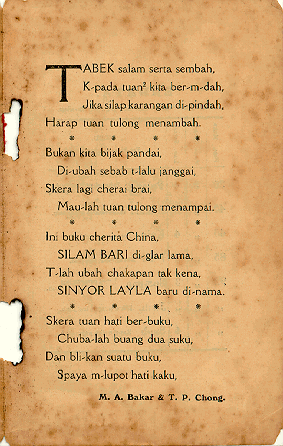 TABEK salam serta sembah,
K-pada tuan² kita ber-m-dah,
Jika silap karangan di-pindah,
Harap tuan tulong menambah.
* * * *
Bukan kita bijak pandai,
Di-ubah sebab t-lalu janggai,
Skera lagi cherai brai,
Mau-lah tuan tulong menampai.
* * * *
Ini buku cherita China,
SILAM BARI di-glar lama,
T-lah ubah chakapan tak kena,
SINYOR LAYLA baru di-nama.
* * * *
Skera tuan hati ber-buku,
Chuba-lah buang dua suku,
Dan bli-kan suatu buku,
Spaya m-lupot hati kaku,
M. A. Bakar & T. P. Chong.